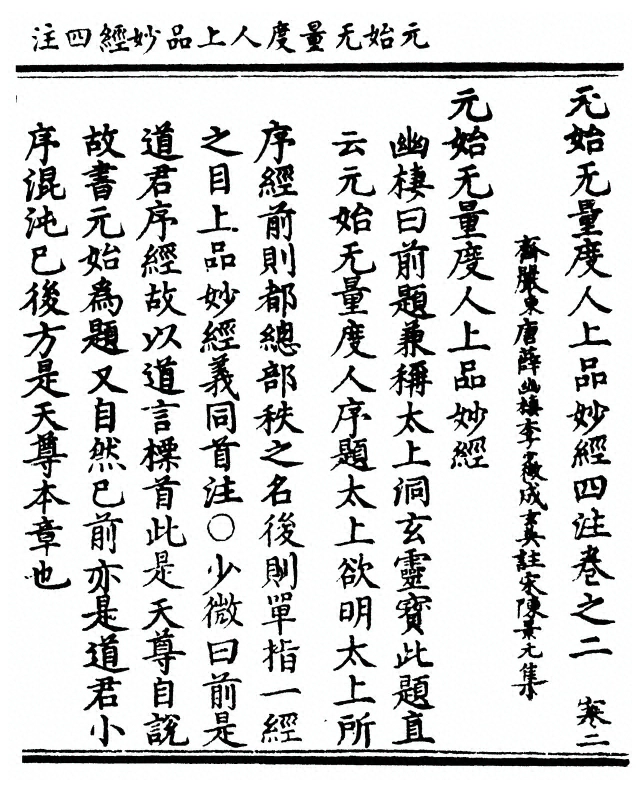 元始无量度人上品妙經四注
元始无量度人上品妙經四注卷之二 寒二
齊嚴東唐薛幽棲李少微成玄英註宋陳景元集
元始无量度人上品妙經
幽棲曰前題兼稱太上洞玄靈寳此題直
云元始无量度人序題太上欲明太上所
序經前則都總部秩之名後則單指一經
之目上品妙經義同首注○少微曰前是
道君序經故以道言標首此是天尊自說
故書元始為題又自然已前亦是道君小
序混沌已後方是天尊本章也